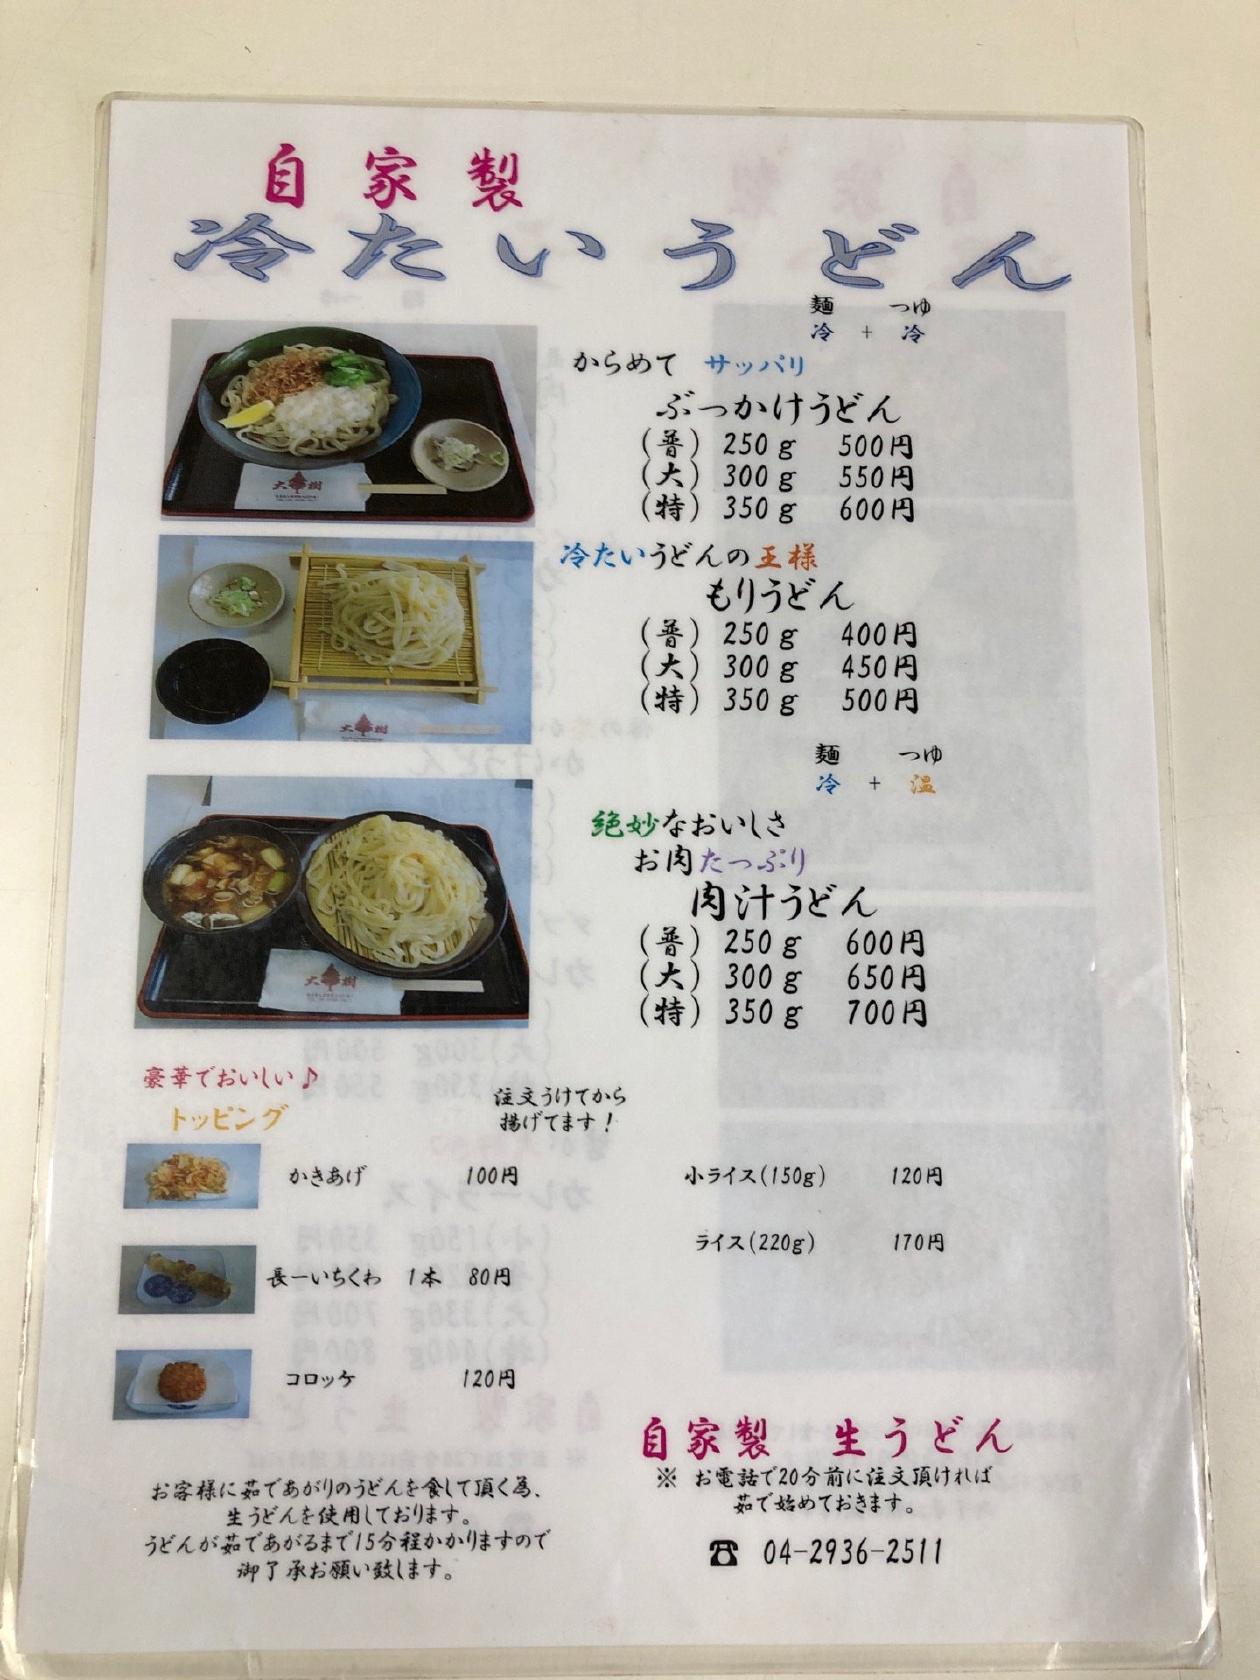 自家製
冷たいうどん
麺 つゆ
冷 + 冷
からめて サッパリ
ぶっかけうどん
(普) 250g 500円
(大) 300g 550円
(特) 350g 600円
大樹
冷たいうどんの王様
もりうどん
(普) 250g 400円
(大) 300g 450円
(特) 350g 500円
大樹
麺 つゆ
冷 + 温
絶妙なおいしさ
お肉たっぷり
肉汁うどん
(普) 250g 600円
(大) 300g 650円
(特) 350g 700円
大樹
豪華でおいしい♪
トッピング
注文うけてから
揚げてます!
かきあげ 100円
長ーいちくわ 1本 80円
コロッケ 120円
小ライス(150g) 120円
ライス(220g) 170円
お客様に茹であがりのうどんを食して頂く為、
生うどんを使用しております。
うどんが茹であがるまで15分程かかりますので
御了承お願い致します。
自家製 生うどん
※ お電話で20分前に注文頂ければ
茹で始めておきます。
☎ 04-2936-2511